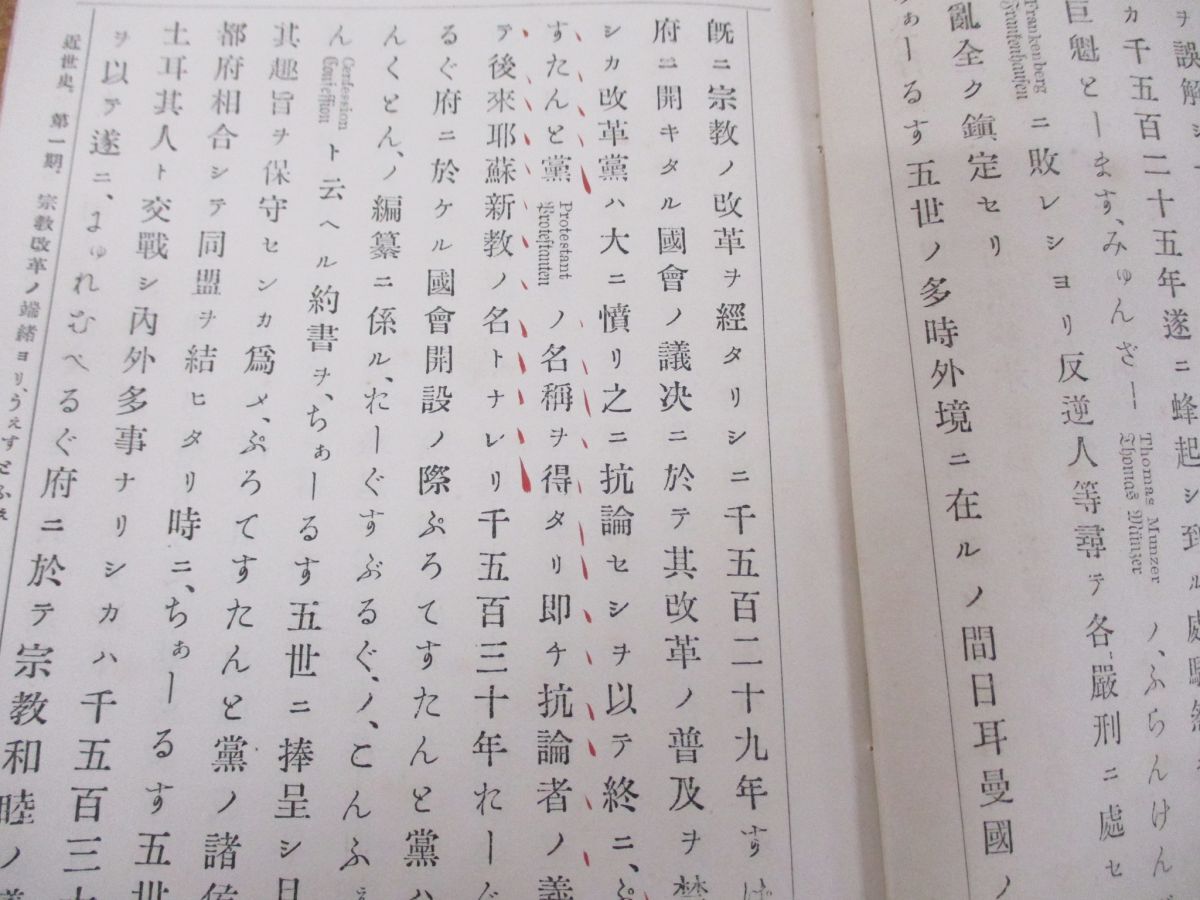 ヲ誤解シ
カ千五百二十五年遂ニ蜂起シ到ル處騷
巨魁とーます、みゅんざー
Thomas Munzer
Thomas Münzer
ノ、ふらんけん
Frankenberg
Frankenhausen
ニ敗レショリ反逆人等尋テ各嚴刑ニ處セ
亂全ク鎭定セリ
ぁーるす五世ノ多時外境ニ在ルノ間日耳曼國ノ
旣ニ宗教ノ改革ヲ經タリシニ千五百二十九年すぱ
府ニ開キタル國會ノ議决ニ於テ其改革ノ普及ヲ禁
シカ改革黨ハ大ニ憤リ之ニ抗論セシヲ以テ終ニ、ぷ
すたんと黨
Protestant
Protestanten
ノ名稱ヲ得タリ卽チ抗論者ノ義
テ後來耶蘇新教ノ名トナレリ千五百三十年れーぐ
るぐ府ニ於ケル國會開設ノ際ぷろてすたんと黨ハ
んくとん、ノ編纂ニ係ル、れーぐすぶるぐ、ノ、こんふぇ
ん
Confession
Confession
ト云ヘル約書ヲ、ちぁーるす五世ニ捧呈シ日
其趣旨ヲ保守センカ爲メ、ぷろてすたんと黨ノ諸侯
都府相合シテ同盟ヲ結ヒタリ時ニ、ちぁーるす五世
土耳其人ト交戰シ內外多事ナリシカハ千五百三十
ヲ以テ遂ニ、にゅれむべるぐ府ニ於テ宗教和睦ノ
近世史、第一期、宗教改革ノ端緒ヨリ、うぇすとふぁ